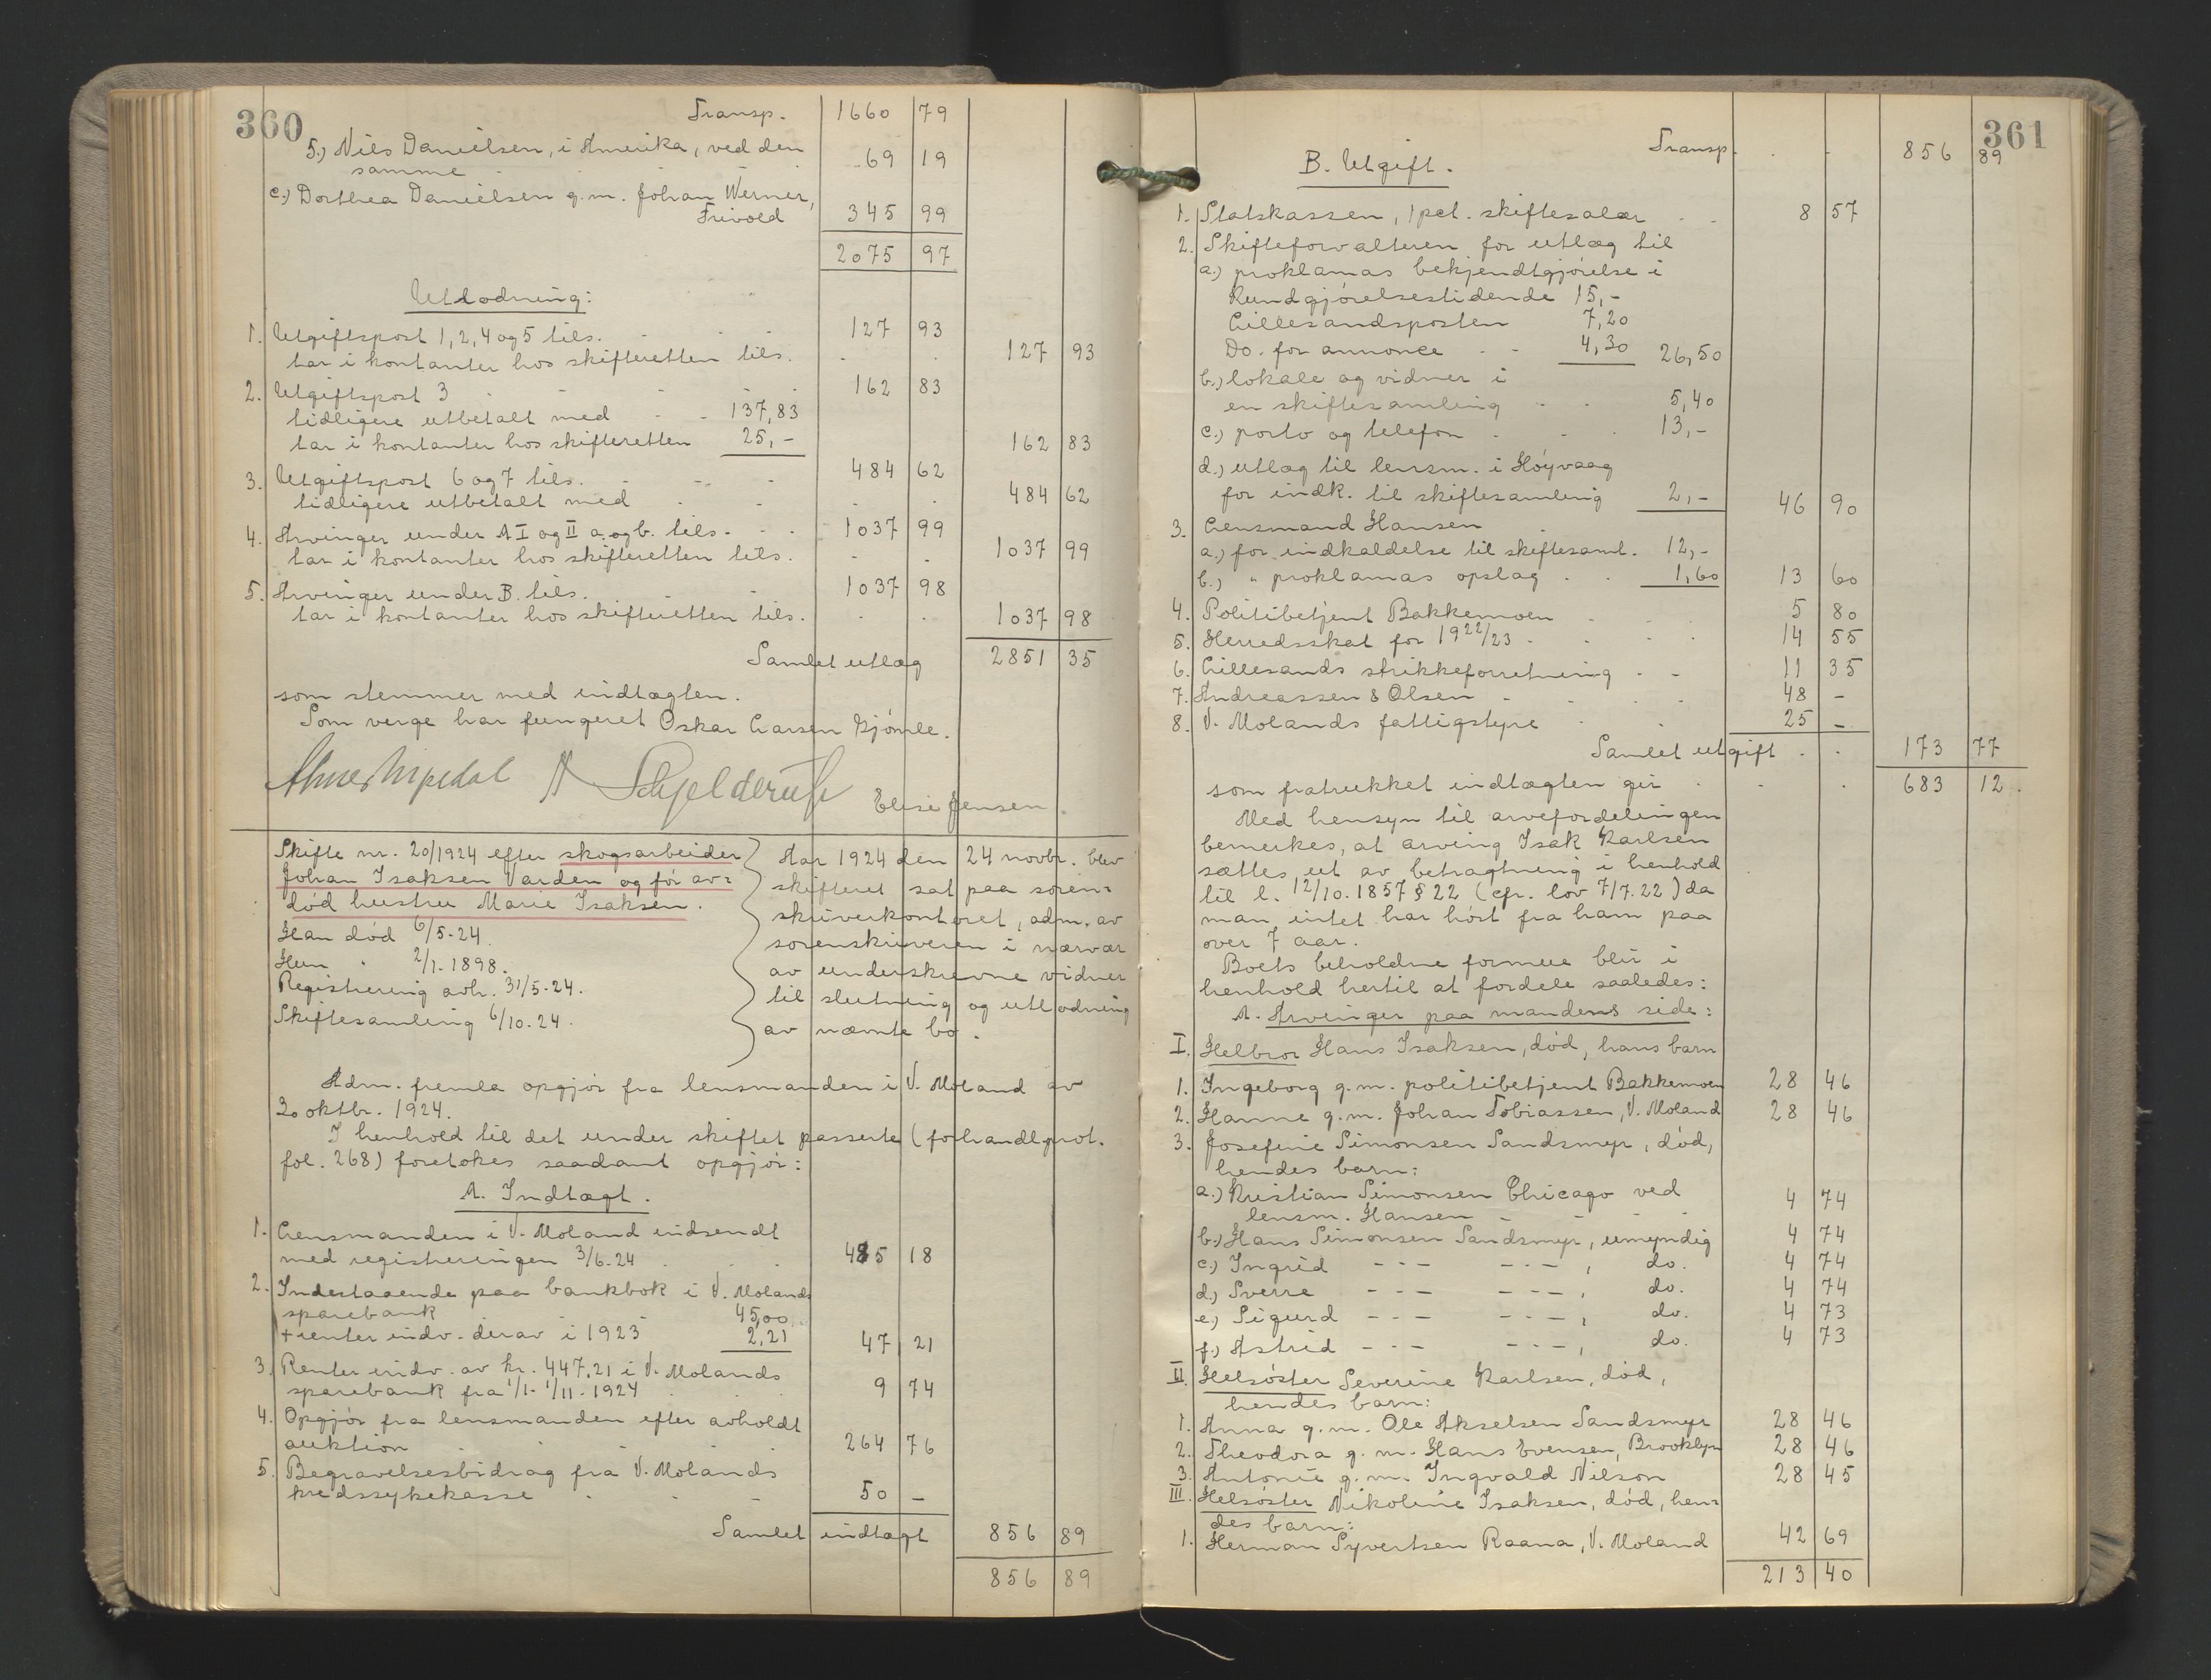 360
Transp. 1660 79
5.) Niels Danielsen, i Amerika, ved den
samme 69 19
c.) Dorthea Danielsen g.m. Johan Werner,
Trivold 345 99
2075 97
Utlodning:
1. Utgiftspost 1, 2, 4 og 5 tils. 127 93
tar i kontanter hos skifteretten tils. 127 93
2. Utgiftspost 3 162 83
tidligere utbetalt med 137,83
tar i kontanter hos skifteretten 25,- 162 83
3. Utgiftspost 6 og 7 tils. 484 62
tidligere utbetalt med 484 62
4. Arvinger under A I og II a. og b. tils. 1037 99
tar i kontanter hos skifteretten tils. 1037 99
5. Arvinger under B. tils. 1037 98
tar i kontanter hos skifteretten tils. 1037 98
Samlet utlæg 2851 35
som stemmer med indtægten.
Som verge har fungeret Oskar Larsen Gjømle.
Schjelderup Elise Jensen.
Skifte nr. 20/1924 efter skogsarbeider
Johan Isaksen Varden og før av=
død hustru Marie Isaksen.
Han død 6/5-24.
Hun " 2/1-1898.
Registrering avh. 31/5-24.
Skiftesamling 6/10-24.
Aar 1924 den 24 novbr. blev
skifteret sat paa soren=
skriverkontoret, adm. av
sorenskriveren i nærvær
av underskrevne vidner
til slutning og utlodning
av nævnte bo.
Adm. fremla opgjør fra lensmanden i V. Moland av
30 oktbr. 1924.
I henhold til det under skiftet passerte (forhandl.prot.
fol. 268) foretokes saadant opgjør:
A. Indtægt.
1. Lensmanden i V. Moland indsendt
med registreringen 3/6-24 485 18
2. Indestaaende paa bankbok i V. Molands
sparebank 45,00
+ renter indv. derav i 1923 2,21 47 21
3. Renter indv. av kr. 447,21 i V. Molands
sparebank fra 1/1-1/11-1924 9 74
4. Opgjør fra lensmanden efter avholdt
auktion 264 76
5. Begravelsesbidrag fra V. Molands
kredssykekasse 50 -
Samlet indtægt 856 89
856 89
361
Transp. 856 89
B. Utgift.
1. Statskassen, 1 pct. skiftesalær 8 57
2. Skifteforvalteren for utlæg til
a.) proklamas bekjendtgjørelse i
Kundgjørelsestidende 15,-
Lillesandsposten 7,20
Do. for annonce 4,30 26,50
b.) lokale og vidner i
en skiftesamling 5,40
c.) porto og telefon 13,-
d.) utlæg til lensm. i Høyvaag
for indk. til skiftesamling 2,- 46 90
3. Lensmand Hansen
a.) for indkaldelse til skiftesaml. 12,-
b.) " proklamas opslag 1,60 13 60
4. Politibetjent Bakkemoen 5 80
5. Herredsskat for 1922/23 14 55
6. Lillesands strikkeforretning 11 35
7. Andreassen & Olsen 48 -
8. V. Molands fattigstyre 25 -
Samlet utgift 173 77
som fratrukket indtægten gir 683 12.
Med hensyn til arvefordelingen
bemerkes, at arving Isak Karlsen
sættes ut av betragtning i henhold
til l. 12/10.1857 § 22 (cfr. lov 7/7.22) da
man intet har hørt fra ham paa
over 7 aar.
Boets beholdne formue blir i
henhold hertil at fordele saaledes:
A. Arvinger paa mandens side:
I. Helbror Hans Isaksen, død, hans barn
1. Ingeborg g.m. politibetjent Bakkemoen 28 46
2. Hanne g.m. Johan Tobiassen, V. Moland 28 46
3. Josefine Simonsen Sandsmyr, død,
hendes barn:
a.) Kristian Simonsen Chicago ved
lensm. Hansen 4 74
b.) Hans Simonsen Sandsmyr, umyndig 4 74
c.) Ingrid - - - - - - , do. 4 74
d.) Sverre - - - - - - , do. 4 74
e.) Sigurd - - - - - - , do. 4 73
f.) Astrid - - - - - - , do. 4 73
II. Helsøster Severine Karlsen, død,
hendes barn:
1. Anna g.m. Ole Akselsen Sandsmyr 28 46
2. Theodora g.m. Hans Evensen, Brooklyn 28 46
3. Antonie g.m. Ingvald Nilson 28 45
III. Helsøster Nikoline Isaksen, død, hen=
des barn:
1. Herman Syvertsen Raana, V. Moland 42 69
213 40